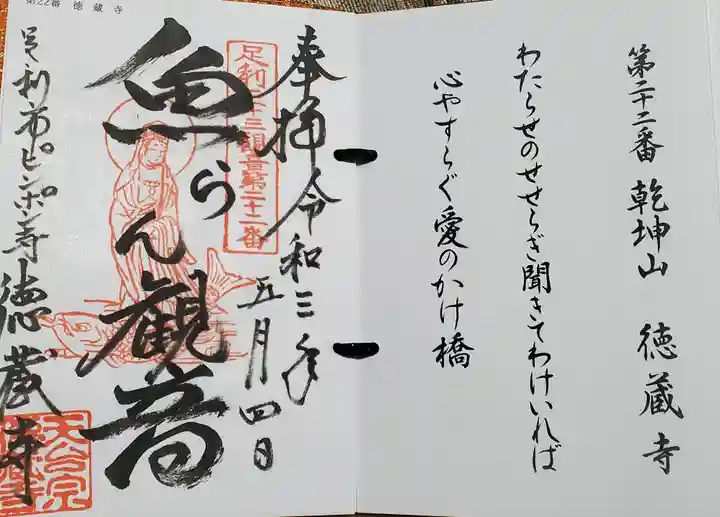 第二十二番 乾坤山 徳蔵寺
わたらせのせせらぎ聞きてわけいれば
心やすらぐ愛のかけ橋
第22番 徳蔵寺
奉拝 令和三年
五月四日
足利三十三観音第二十二番
魚らん観音
足利市ピンポン寺 徳蔵寺
天台宗
徳蔵寺